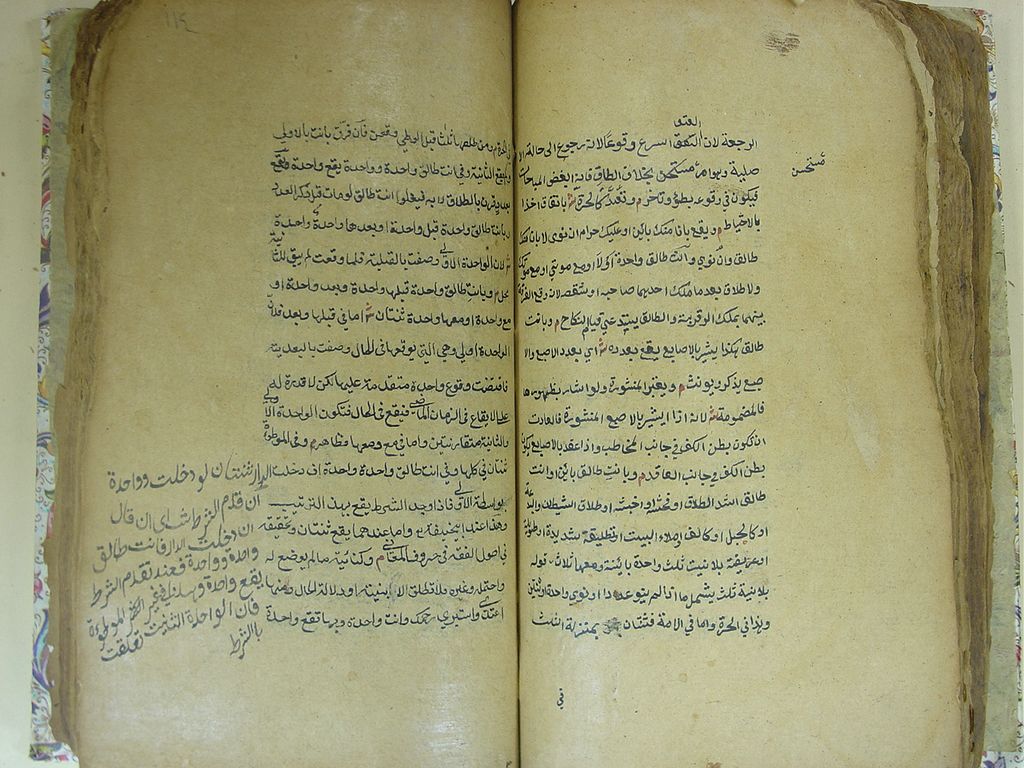 العتق
الرجعة لان العتق اسرع وقوعا لانه رجوع الى حالة
مستحسن
صلية وهو امر مستحسن بخلاف الطلاق فانه ابغض المباحات
فيكون في وقوعه بطؤ وتاخر م وتعتد كالحرة ش باتفاق اخذا
بالاحتياط م ويقع بانا منك بائن او عليك حرام ان نوى لا بانا منك
طالق وان نوى وانت طالق واحدة اولا او مع موتي او مع موتك
ولا طلاق بعد ما ملك احدهما صاحبه او شقصه لانه وقع الفرقة
بينهما بملك الرقبة والطلاق يستدعي قيام النكاح م وبانت
طالق هكذا يشير بالاصابع يقع بعدده ش اي بعدد الاصبع والا
صبع يذكر ويؤنث م ويعتبر المنشورة ولو اشار بظهورها
فالمضمومة ش لانه اذا اشير بالاصبع المنشورة فالعادة
ان يكون بطن الكف في جانب المخاطب واذا عقد بالاصابع يكون
بطن الكف في جانب العاقد م وبانت طالق بائن وانت
طالق اشد الطلاق او افحشه او اخبثه او طلاق الشيطان والبدعة
او كالجبل او كالف او ملاء البيت او تطليقة شديدة او طويلة
او عريضة بلا نية ثلث واحدة بائنة ومعها ثلاث ش قوله
بلا نية ثلث يشمل ما اذا لم ينو عددا او نوى واحدة او ثنتين
وهذا في الحرة واما في الامة فثنتان بمنزلة الثلث
في
١١٤
ومن طلقها ثلثا قبل الوطي وقعن فان فرق بانت بالاولى
ولم يقع الثانية وفي انت طالق واحدة وواحدة يقع واحدة
بعدد قرن بالطلاق لا به فيلغو انت طالق لو ماتت قبل ذكر العدد
وبانت طالق واحدة قبل واحدة او بعدها واحدة واحدة
ش لان الواحدة الاولى وصفت بالقبلية فلما وقعت لم يبق للثانية
محل م وبانت طالق واحدة قبلها واحدة وبعد واحدة او
مع واحدة او معها واحدة ثنتان ش اما في قبلها وبعد فلان
الواحدة اولى وهي التي توقعها في الحال وصفت بالبعدية
فاقتضت وقوع واحدة متقدمة عليها لكن لا قدرة له
على الايقاع في الزمان الماضي فيقع في الحال فتكون الواحدة الاولى
والثانية متقارنتين واما في مع ومعها فظاهر م وفي الموطوءة
ثنتان في كلها وفي انت طالق واحدة وواحدة ان دخلت
الدار ثنتان لو دخلت وواحدة
ان قدم الشرط ش اي ان قال
ان دخلت الدار فانت طالق
واحدة وواحدة فعند تقدم الشرط
يقع واحدة وهذا في غير الموطوءة
فان الواحدة الثانية تعلقت
بالشرط
بواسطة الاولى فاذا وجد الشرط يقع بهذا الترتيب
وهذا عند ابي حنيفة واما عندهما يقع ثنتان وتحقيقه
في اصول الفقه في حروف المعاني م وكنايته ما لم يوضع له
واحتمله وغيره فلا تطلق الا بنية او دلالة الحال
اعتدي واستبرئي رحمك وانت واحدة وبها تقع واحدة